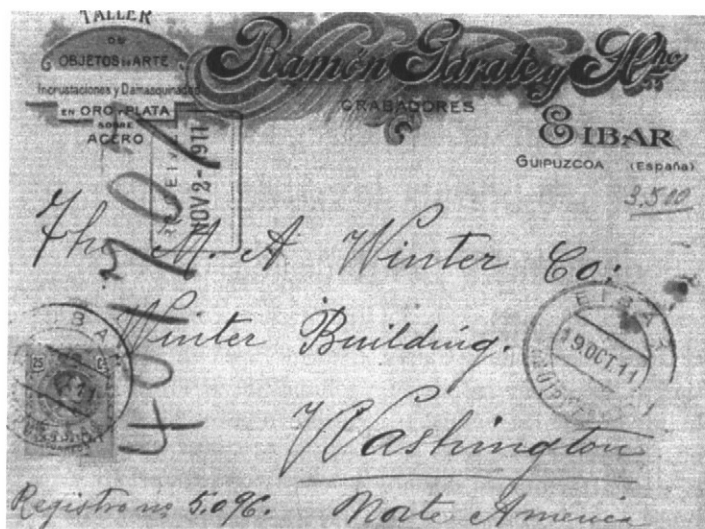 TALLER
DE
OBJETOS DE ARTE
Incrustaciones y Damasquinados
EN ORO Y PLATA
SOBRE
ACERO
Ramón Gárate y Hno
GRABADORES
EIBAR
GUIPUZCOA (España)
3.500
NOV 2-1911
The M. A Winter Co:
Winter Building.
Washington
Norte America
Registro no 5.096.
EIBAR
19 OCT. 11
EIBAR